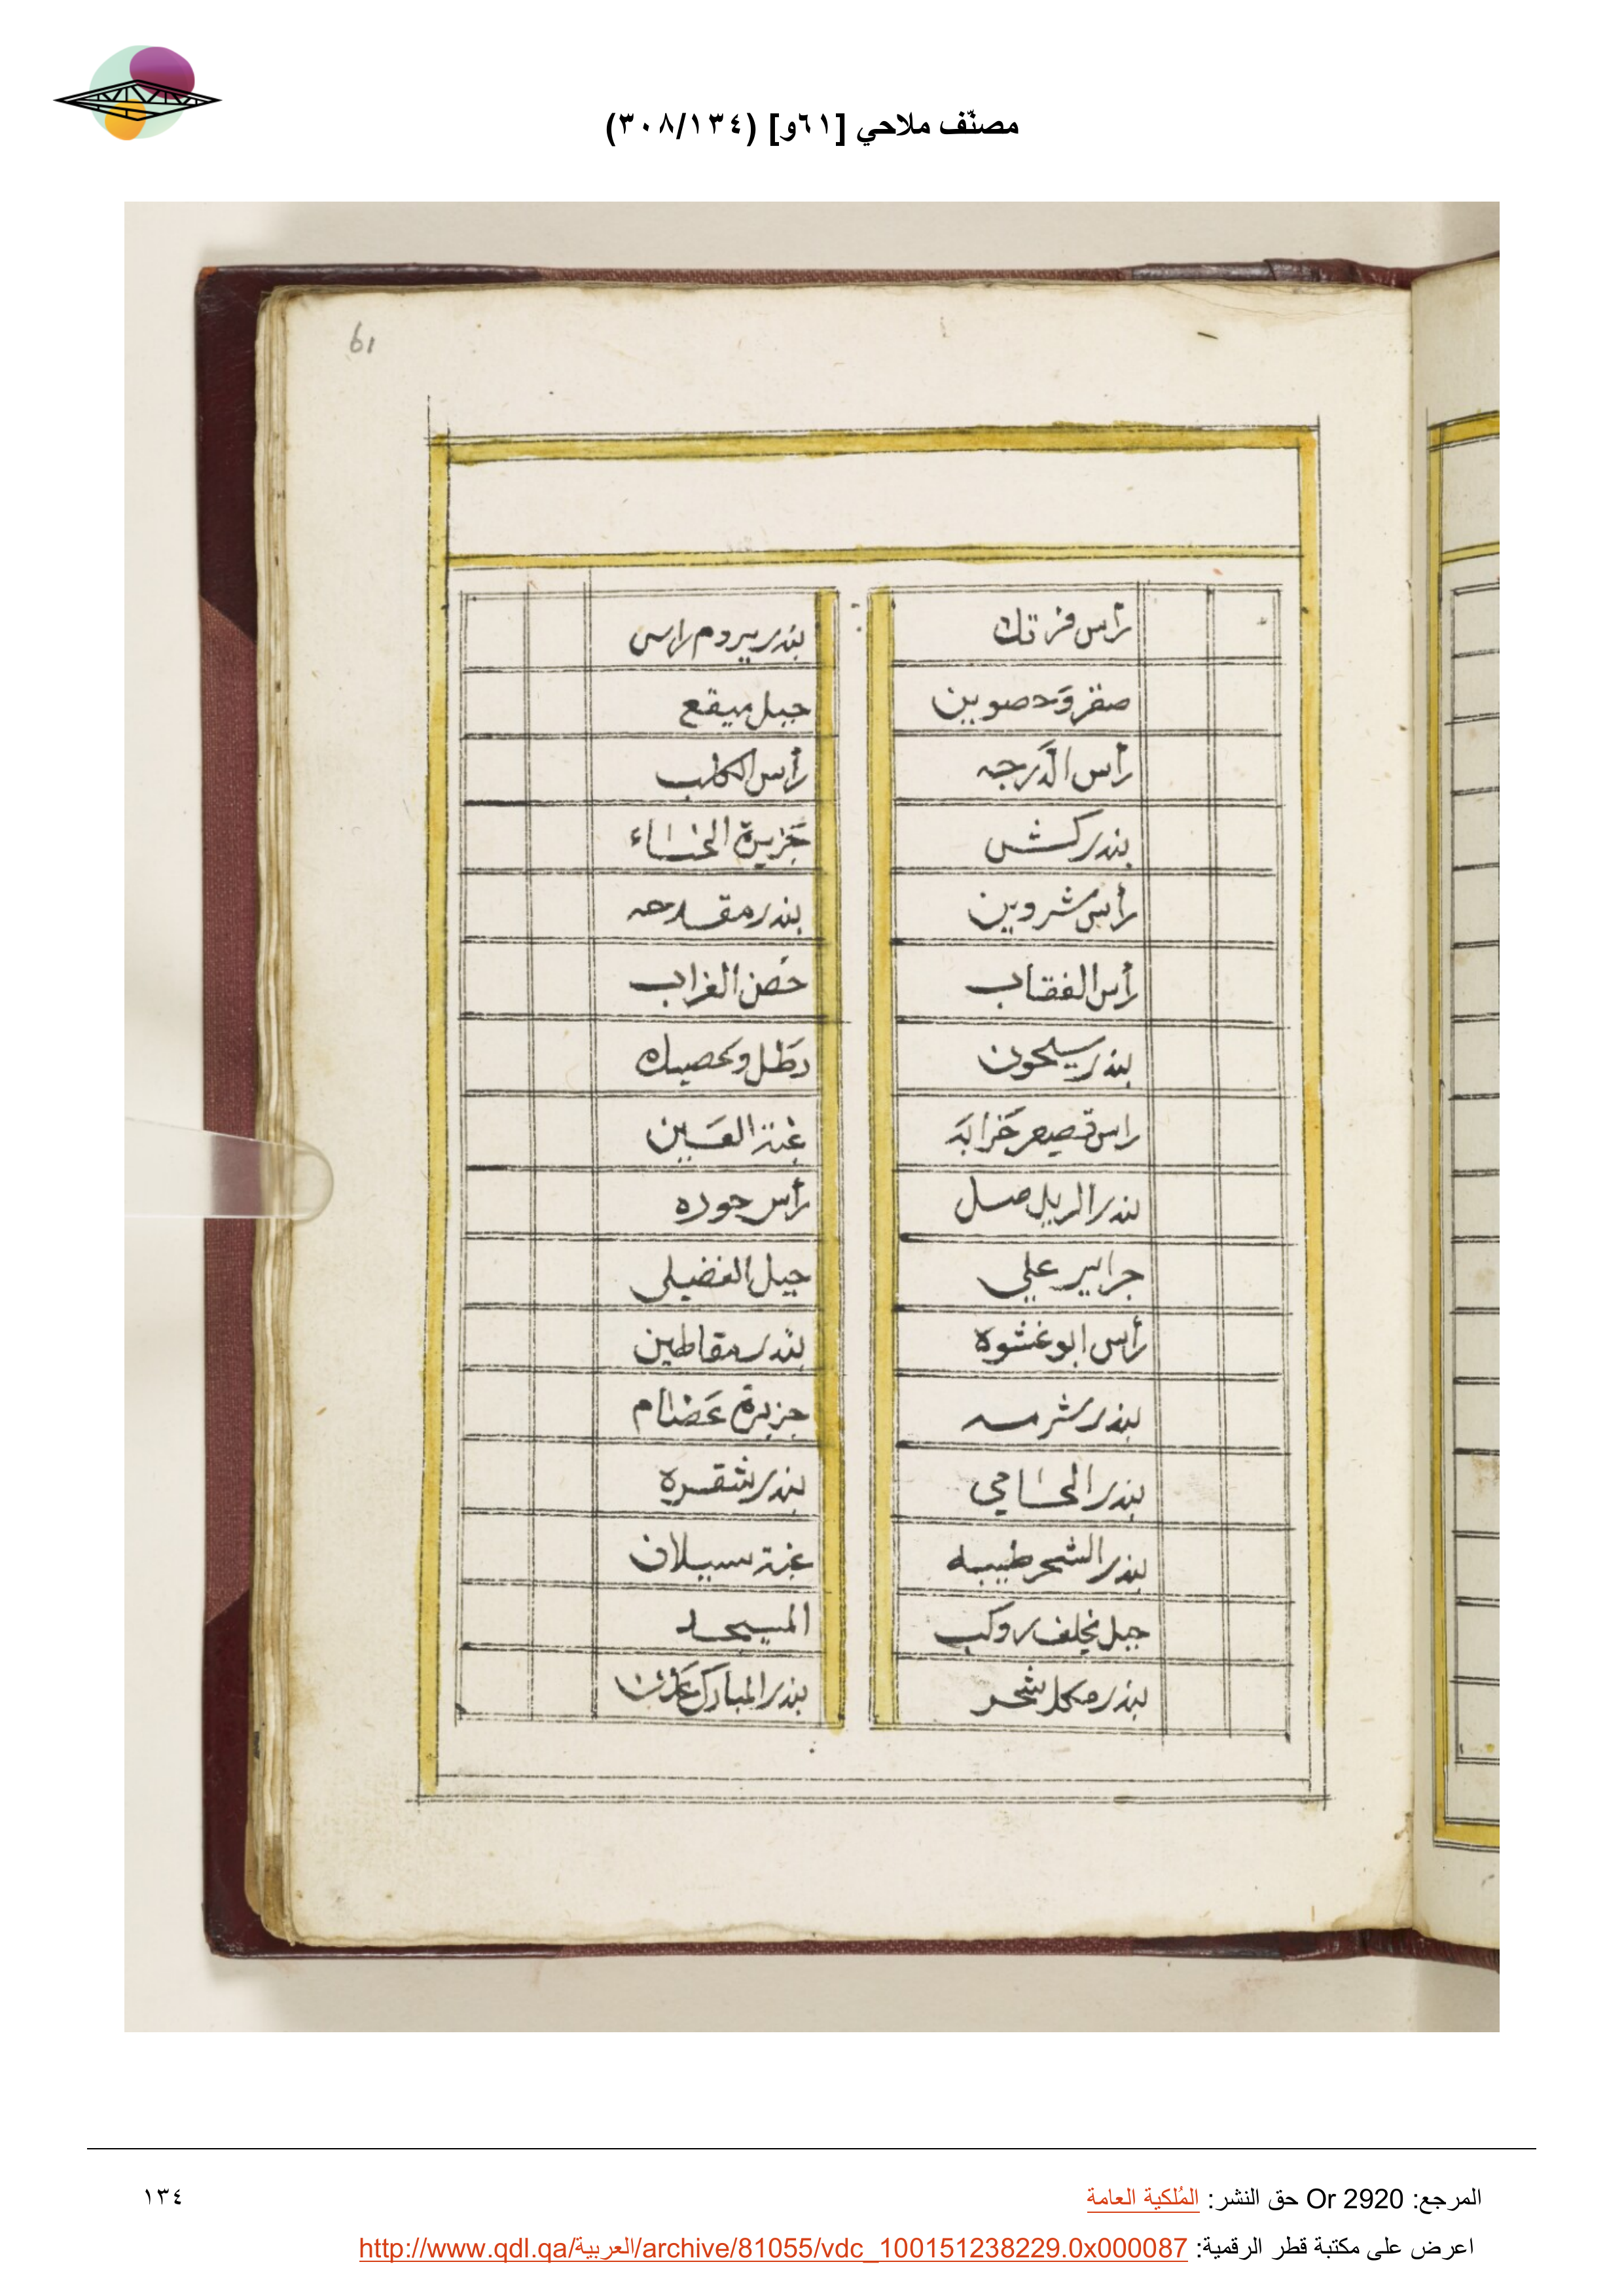 مصنّف ملاحي [٦١و] (٣٠٨/١٣٤)
61
رأس فرتك
صقر وحصوين
رأس الدرجه
بندر كشن
رأس شروين
رأس العقاب
بندر سيحون
راس قصيعر خرابة
بندر الريل صل
جرابير علي
رأس ابو غشوه
بندر شرمه
بندر الحامي
بندر الشحر طيبه
جبل خلف روكب
بندر مكلا شحر
بندر بروم راس
جبل ميقع
رأس الكلب
جزيرة الخساء
بندر مقدحه
حصن الغراب
رطل وعصيده
غبة العين
رأس حوره
جبل الفضيلي
بندر مقاطين
جزيرة عضام
بندر شقره
غبة سيلان
المسجد
بندر المبارك عدن
المرجع: Or 2920 حق النشر: المُلكية العامة
١٣٤
اعرض على مكتبة قطر الرقمية: http://www.qdl.qa/العربية/archive/81055/vdc_100151238229.0x000087